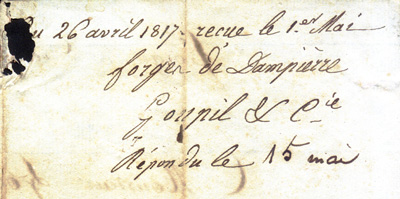 Du 26 avril 1817 recue le 1.er Mai
forges de Dampierre
Goupil & C.ie
Répondu le 15 mai